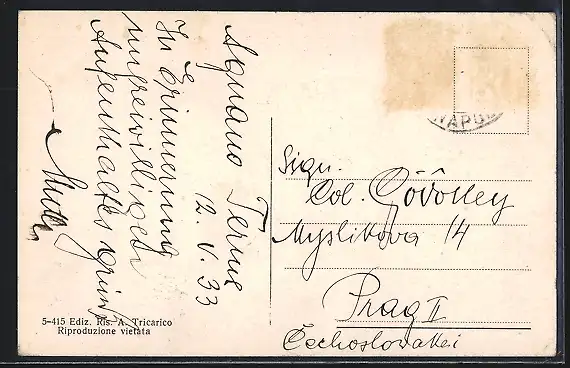 Agnano Terme
12. V. 33
In Erinnerung
unfreiwilligen
Aufenthaltes
5-415 Ediz. Ris. A. Tricarico
Riproduzione vietata
NAPOL
Sign.
Col.
Myslikova 14
Prag II
Čechoslovakei